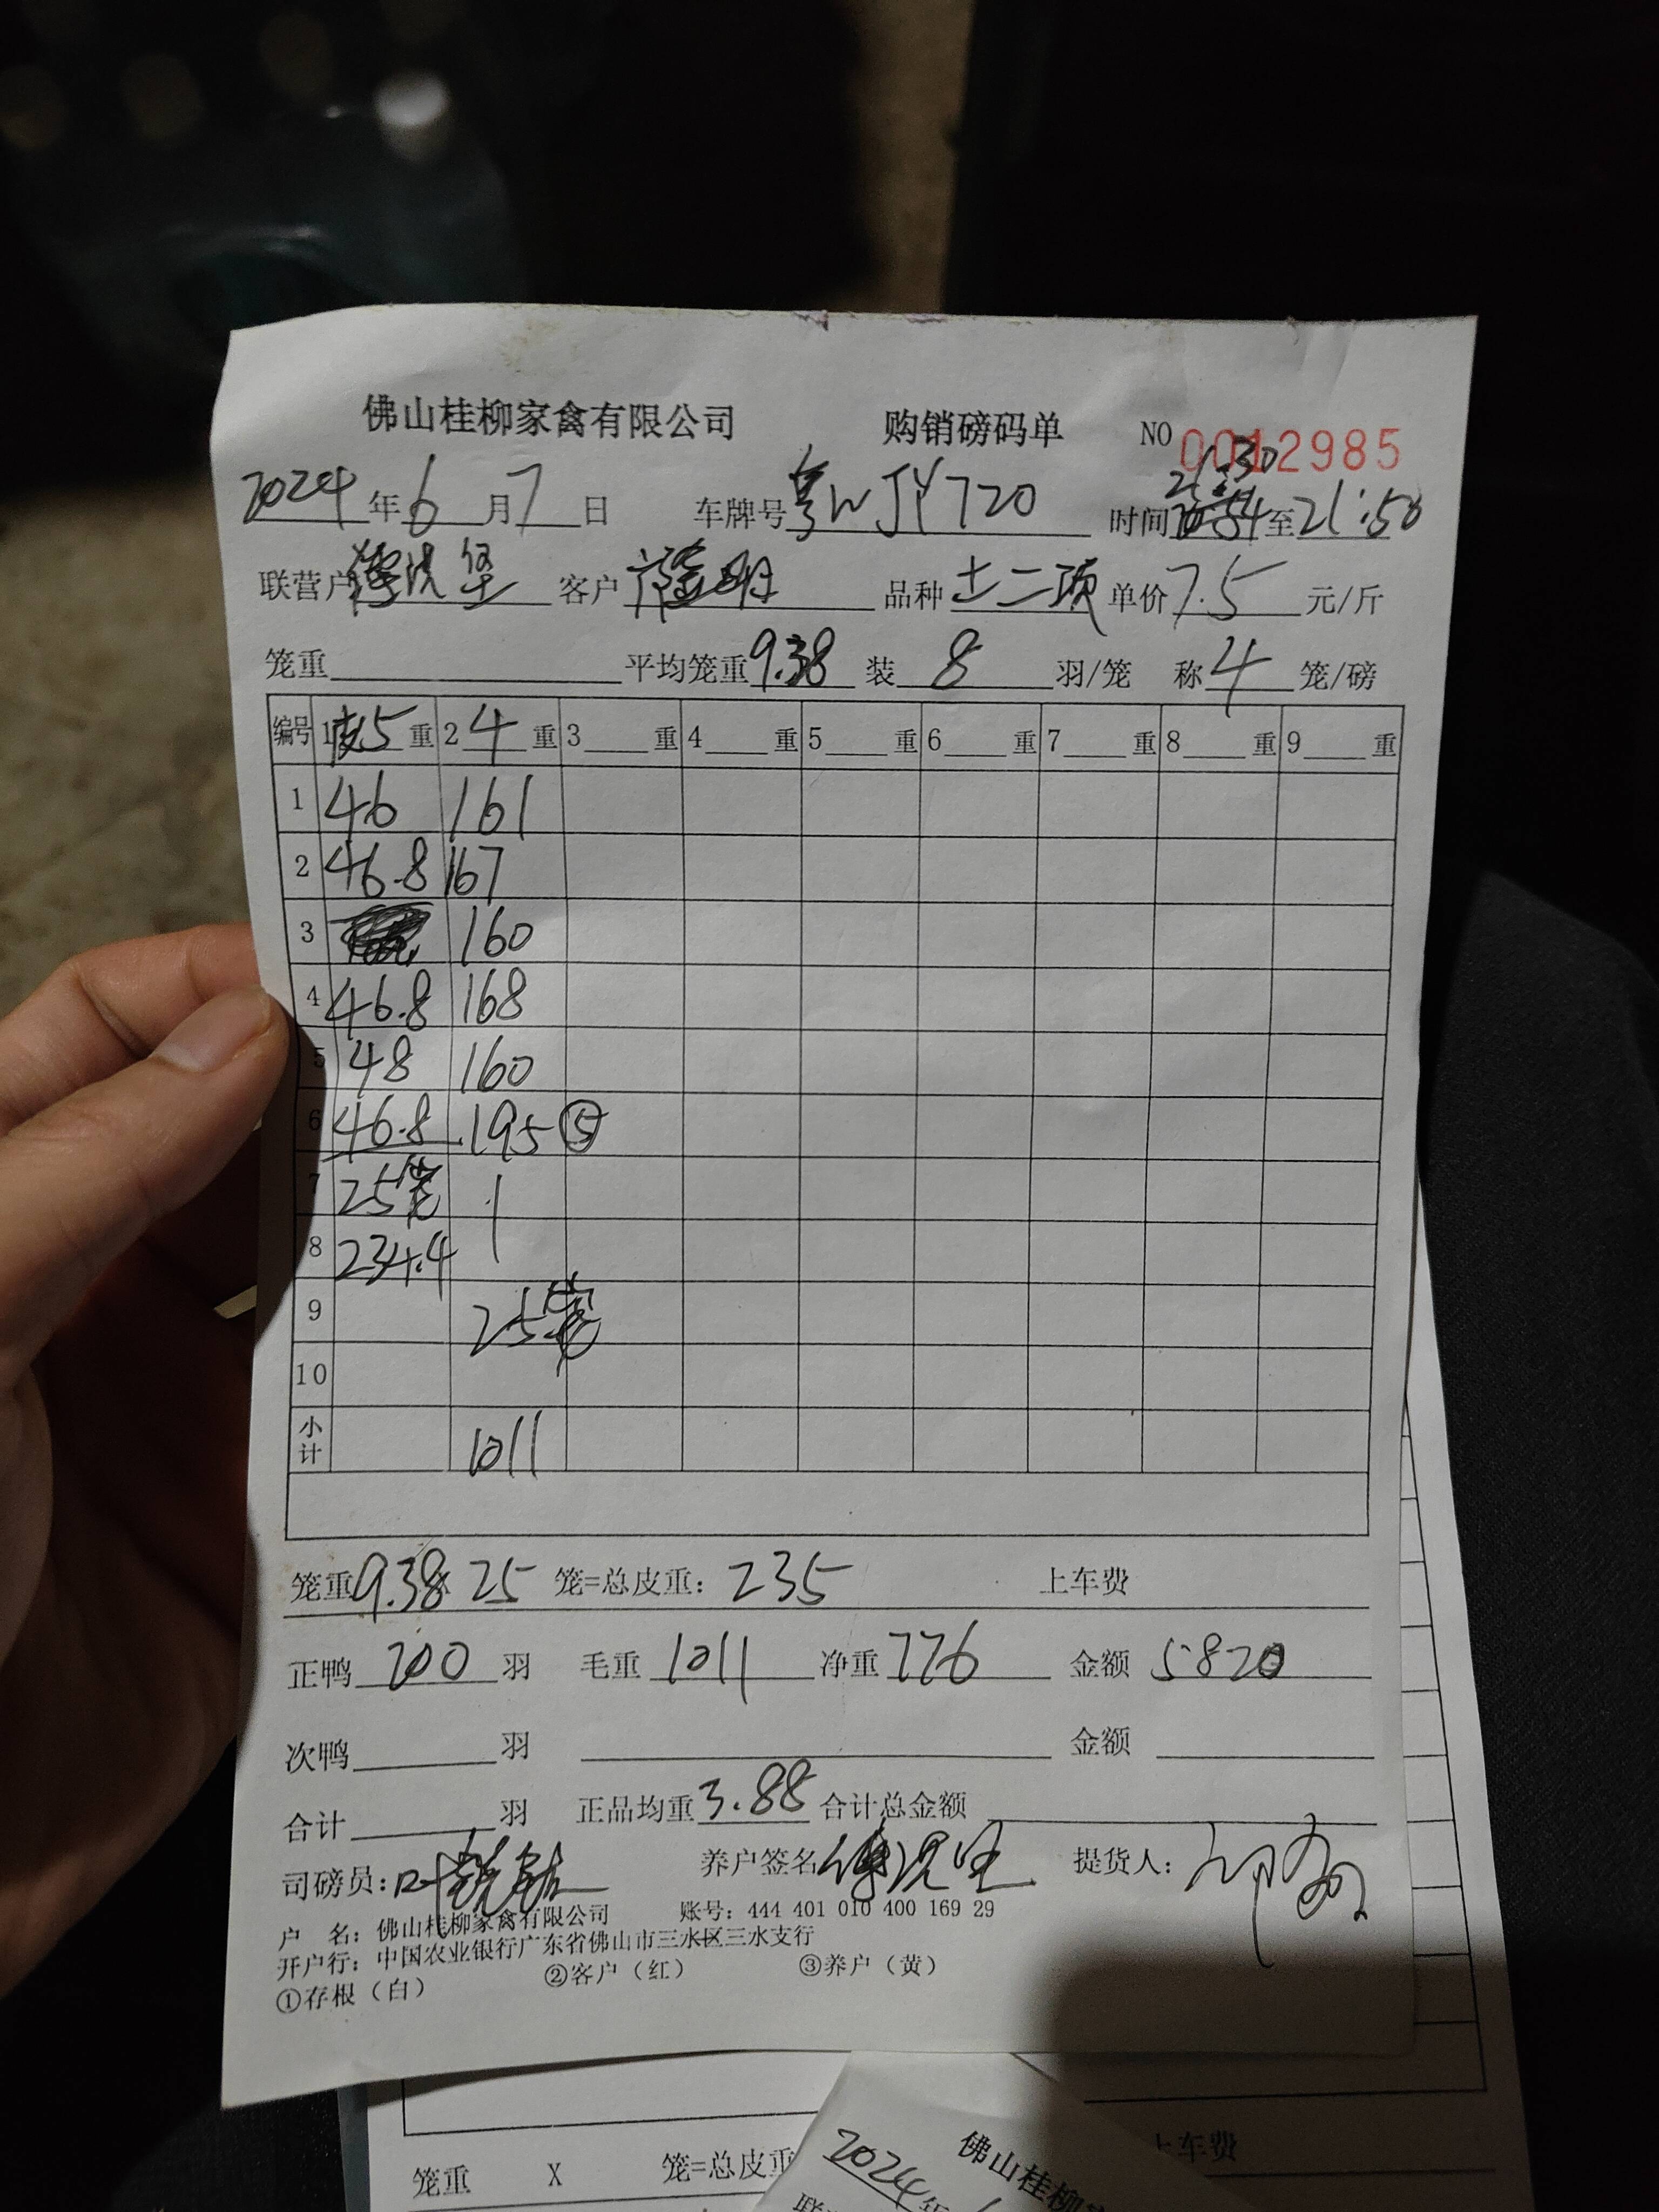 佛山桂柳家禽有限公司 购销磅码单 NO 0012985
21:30
2024年6月7日 车牌号粤WJY720 时间 至21:50
联营户 客户 品种土二项 单价7.5元/斤
笼重 平均笼重9.38 装8羽/笼 称4笼/磅
编号 1皮5重 2 4重 3 重 4 重 5 重 6 重 7 重 8 重 9 重
1 46 161
2 46.8 167
3 160
4 46.8 168
5 48 160
6 46.8 195⑤
7 25笼
8 234.4
9 25笼
10
小计 1011
笼重9.38X 25 笼=总皮重：235 上车费
正鸭200羽 毛重1011 净重776 金额5820
次鸭 羽 金额
合计 羽 正品均重3.88 合计总金额
司磅员： 养户签名 提货人：
户 名：佛山桂柳家禽有限公司 账号：444 401 010 400 169 29
开户行：中国农业银行广东省佛山市三水区三水支行
①存根（白） ②客户（红） ③养户（黄）
笼重 X 笼=总皮重 上车费
佛山桂柳
2024年